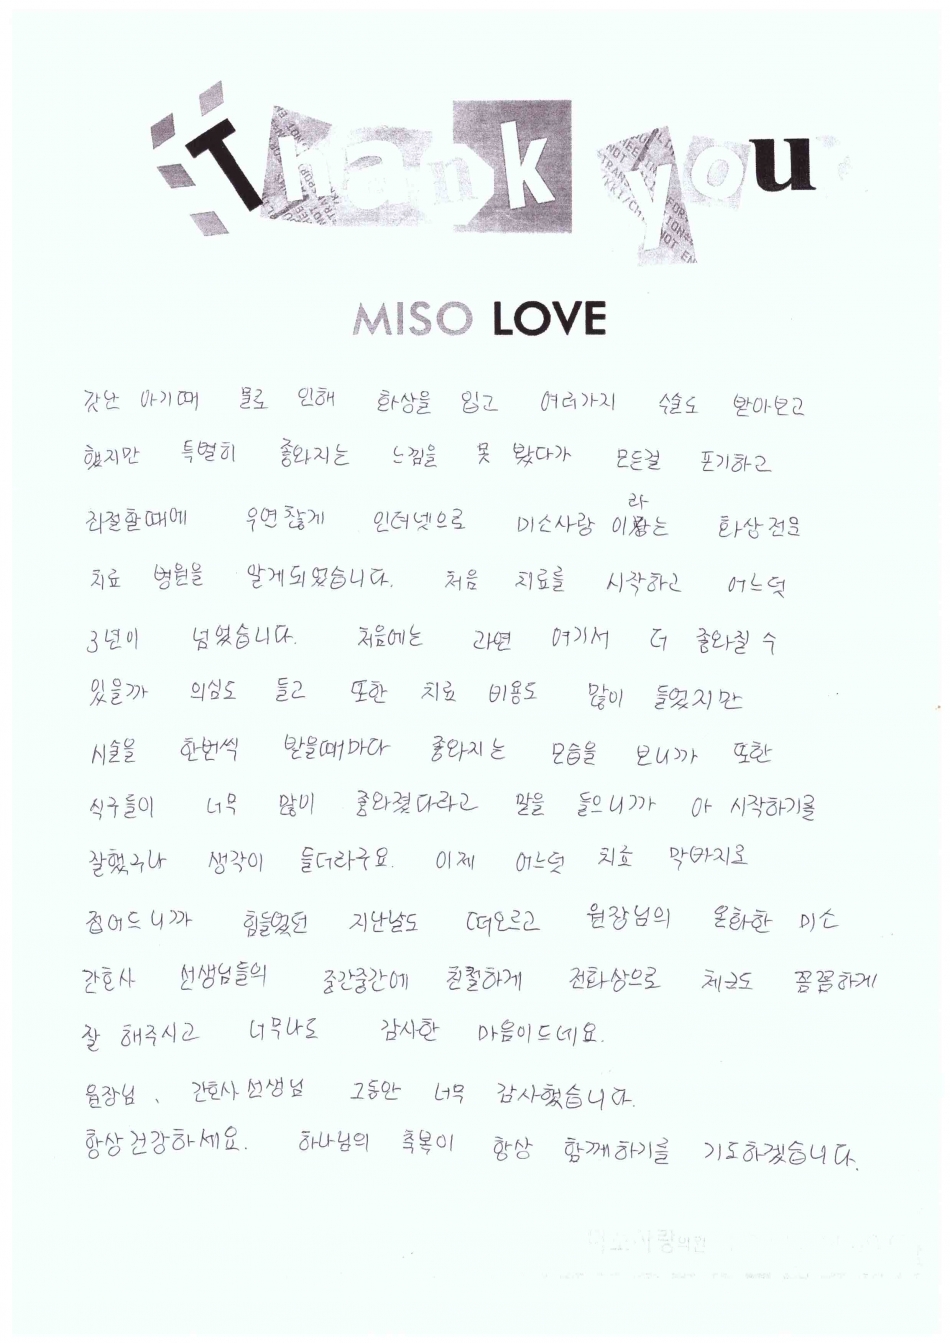 Thank you
MISO LOVE
갓난 아기때 물로 인해 화상을 입고 여러가지 수술도 받아보고
했지만 특별히 좋와지는 느낌을 못 봤다가 모든걸 포기하고
좌절할때에 우연찮게 인터넷으로 미소사랑 이라는 화상전문
치료 병원을 알게되었습니다. 처음 치료를 시작하고 어느덧
3년이 넘었습니다. 처음에는 과연 여기서 더 좋와질 수
있을까 의심도 들고 또한 치료 비용도 많이 들었지만
시술을 한번씩 받을때마다 좋와지는 모습을 보니까 또한
식구들이 너무 많이 좋와졌다라고 말을 들으니까 아 시작하기를
잘했구나 생각이 들더라구요. 이제 어느덧 치료 막바지로
접어드니까 힘들었던 지난날도 떠오르고 원장님의 온화한 미소
간호사 선생님들의 중간중간에 친절하게 전화상으로 체크도 꼼꼼하게
잘 해주시고 너무나도 감사한 마음이드네요.
원장님, 간호사선생님 그동안 너무 감사했습니다.
항상건강하세요. 하나님의 축복이 항상 함께하기를 기도하겠습니다.